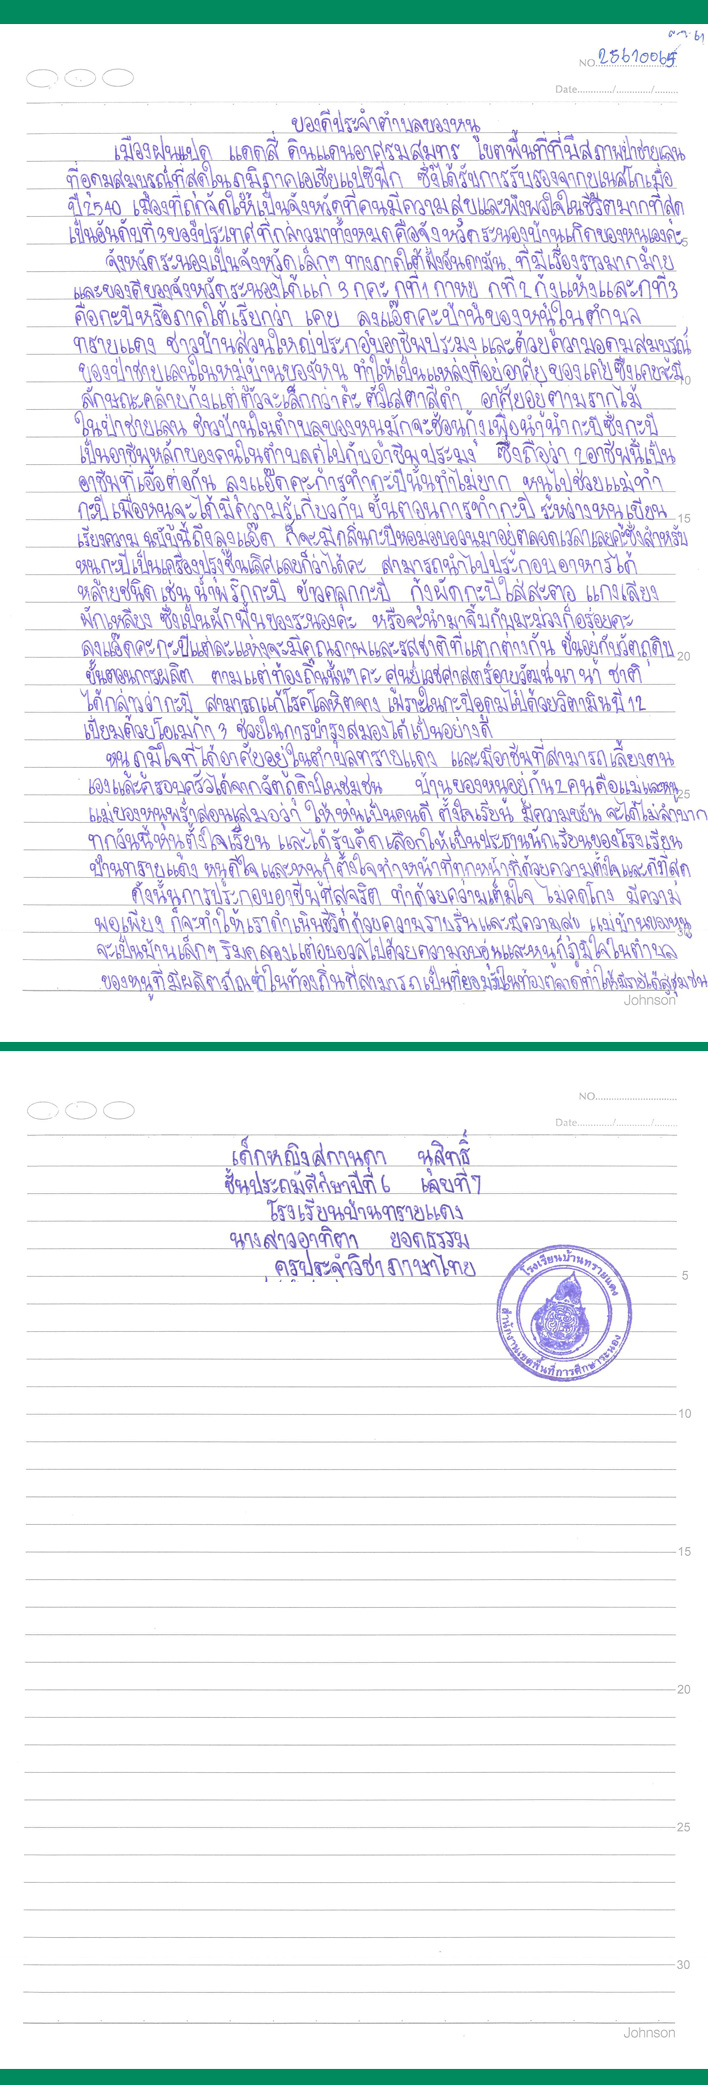 ต.ค. 61
NO. 25610065
Date............/............/........
ของดีประจำตำบลของหนู
เมืองฝนแปด แดดสี่ ดินแดนอาศรมสมุทร โขตพื้นที่ที่มีสภาพป่าชายเลน
ที่อุดมสมบูรณ์ที่สุดในภูมิภาคเอเชียแปซิฟิก ซึ่งได้รับการรับรองจากยูเนสโกเมื่อ
ปี 2540 เมืองที่ถูกจัดให้เป็นจังหวัดที่คนมีความสุขและพึงพอใจในชีวิตมากที่สุด
เป็นอันดับที่ 3 ของประเทศ ที่กล่าวมาทั้งหมดคือจังหวัดระนองบ้านเกิดของหนูเองค่ะ
5
จังหวัดระนองเป็นจังหวัดเล็กๆ ทางภาคใต้ฝั่งอันดามัน ที่มีเรื่องราวมากมาย
และของดีของจังหวัดระนองได้แก่ 3 ก ค่ะ ก ที่ 1 กาหยู ก ที่ 2 กุ้งแห้งและ ก ที่ 3
คือกะปิหรือภาคใต้เรียกว่า เคย ลุงแอ๊ดคะบ้านของหนูในตำบล
ทรายแดง ชาวบ้านส่วนใหญ่ประกอบอาชีพประมง และด้วยความอุดมสมบูรณ์
ของป่าชายเลนในหมู่บ้านของหนู ทำให้เป็นแหล่งที่อยู่อาศัยของเคยซึ่งเคยจะมี
10
ลักษณะคล้ายกุ้งแต่ตัวจะเล็กกว่าค่ะ ตัวใสตาสีดำ อาศัยอยู่ตามรากไม้
ในป่าชายเลน ชาวบ้านในตำบลของหนูมักจะช้อนกุ้งเพื่อนำมาทำกะปิซึ่งกะปิ
เป็นอาชีพหลักของคนในตำบลคู่ไปกับอาชีพประมง ซึ่งถือว่า 2 อาชีพนี้เป็น
อาชีพที่เอื้อต่อกัน ลุงแอ๊ดคะการทำกะปินั้นทำไม่ยาก หนูไปช่วยแม่ทำ
กะปิเพื่อหนูจะได้มีความรู้เกี่ยวกับขั้นตอนการทำกะปิ ระหว่างหนูเขียน
15
เรียงความฉบับนี้ถึงลุงแอ๊ด ก็จะมีกลิ่นกะปิหอมอบอวนมาอยู่ตลอดเวลาเลยค่ะซึ่งสำหรับ
หนูกะปิเป็นเครื่องปรุงชั้นเลิศเลยก็ว่าได้ค่ะ สามารถนำไปประกอบอาหารได้
หลายชนิด เช่น น้ำพริกกะปิ ข้าวคลุกกะปิ กุ้งผัดกะปิใส่สะตอ แกงเลียง
ผักเหลียง ซึ่งเป็นผักพื้นของระนองค่ะ หรือจะนำมาจิ้มกับมะม่วงก็อร่อยค่ะ
ลุงแอ๊ดคะกะปิแต่ละแห่งจะมีคุณภาพและรสชาติที่แตกต่างกัน ขึ้นอยู่กับวัตถุดิบ
20
ขั้นตอนการผลิต ตามแต่ท้องถิ่นนั้นๆ ค่ะ ศูนย์เวชศาสตร์อายุวัฒน์นานาชาติ
ได้กล่าวว่ากะปิ สามารถแก้โรคโลหิตจาง เพราะในกะปิอุดมไปด้วยวิตามินบี 12
เปี่ยมด้วยโอเมก้า 3 ช่วยในการบำรุงสมองได้เป็นอย่างดี
หนูภูมิใจที่ได้อาศัยอยู่ในตำบลทรายแดง และมีอาชีพที่สามารถเลี้ยงตน
เองและครอบครัวได้จากวัตถุดิบในชุมชน บ้านของหนูอยู่กัน 2 คนคือแม่และหนู
25
แม่ของหนูพร่ำสอนเสมอว่า ให้หนูเป็นคนดี ตั้งใจเรียน มีความขยัน จะได้ไม่ลำบาก
ทุกวันนี้หนูตั้งใจเรียน และได้รับคัดเลือกให้เป็นประธานนักเรียนของโรงเรียน
บ้านทรายแดง หนูดีใจและหนูก็ตั้งใจทำหน้าที่ทุกหน้าที่ด้วยความตั้งใจและดีที่สุด
ดังนั้นการประกอบอาชีพที่สุจริต ทำด้วยความเต็มใจ ไม่คดโกง มีความ
พอเพียง ก็จะทำให้เราดำเนินชีวิตด้วยความราบรื่นและมีความสุข แม้บ้านของหนู
30
จะเป็นบ้านเล็กๆ ริมคลองแต่อบอวลไปด้วยความอบอุ่นและหนูก็ภูมิใจในตำบล
ของหนูที่มีผลิตภัณฑ์ในท้องถิ่นที่สามารถเป็นที่ยอมรับในท้องตลาดทำให้มีรายได้สู่ชุมชน
Johnson
NO.............................
Date............/............/........
เด็กหญิงสุกานดา นุสิทธิ์
ชั้นประถมศึกษาปีที่ 6 เลขที่ 7
โรงเรียนบ้านทรายแดง
นางสาวอาทิตา ยอดธรรม
ครูประจำวิชาภาษาไทย
โรงเรียนบ้านทรายแดง
สำนักงานเขตพื้นที่การศึกษาระนอง
5
10
15
20
25
30
Johnson